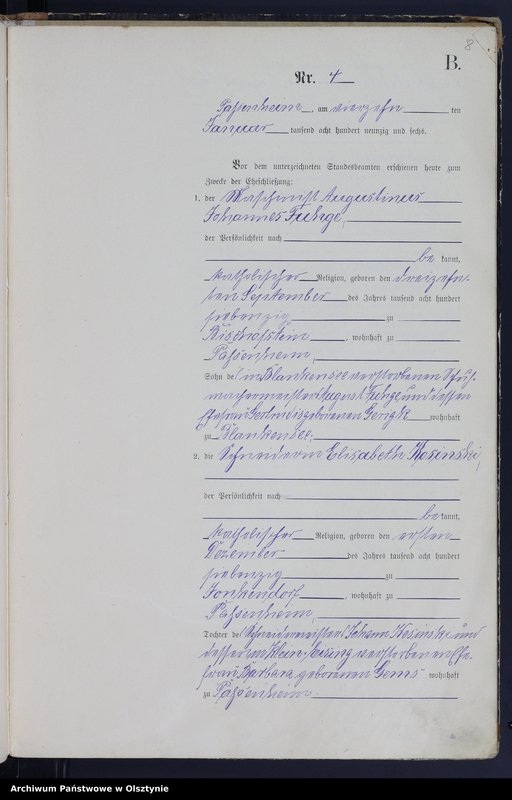 8
B.
Nr. 4
Passenheim, am vierzehn ten
Januar tausend acht hundert neunzig und sechs.
Vor dem unterzeichneten Standesbeamten erschienen heute zum
Zwecke der Eheschließung:
1. der Maschinist Augustinus
Johannes Fuhge,
der Persönlichkeit nach
be kannt,
katholischer Religion, geboren den dreizehn-
ten September des Jahres tausend acht hundert
siebenzig zu
Bischofstein, wohnhaft zu
Passenheim,
Sohn des in Blankensee verstorbenen Schuh-
machermeisters August Fuhge und dessen
Ehefrau Gertrud geborenen Gerigk wohnhaft
zu Blankensee;
2. die Schneiderin Elisabeth Kosinski,
der Persönlichkeit nach
be kannt,
katholischer Religion, geboren den ersten
Dezember des Jahres tausend acht hundert
siebenzig zu
Jonkendorf, wohnhaft zu
Passenheim,
Tochter des Schneidermeisters Johann Kosinski und
dessen in Klein verstorbenen Ehe-
frau Barbara geborenen Gems wohnhaft
zu Passenheim.
Archiwum Państwowe w Olsztynie